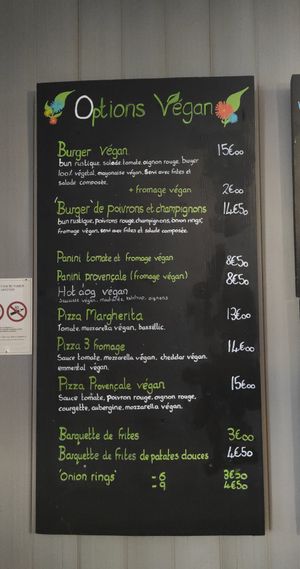 Options Vegan
Burger Vegan 15€00
bun rustique, salade, tomate, oignon rouge, burger
100% végétal, mayonaise végan, servi avec frites et
salade composée.
+ fromage végan 2€00
'Burger' de poivrons et champignons 14€50
bun rustique, poivrons rouge, champignons, onion rings,
fromage végan, servi avec frites et salade composée.
Panini tomate et fromage végan 8€50
Panini provençale (fromage végan) 8€50
Hot dog végan
Saucisse végan, moutarde, ketchup, oignons
Pizza Margherita 13€00
Tomate, mozzarella végan, bassilic.
Pizza 3 fromage 14€00
Sauce tomate, mozzarella végan, cheddar végan,
emmental végan.
Pizza Provençale végan 15€00
Sauce tomate, poivron rouge, oignon rouge,
courgette, aubergine, mozzarella végan.
Barquette de frites 3€00
Barquette de frites de patates douces 4€50
'Onion rings' - 6 3€50
- 9 4€50